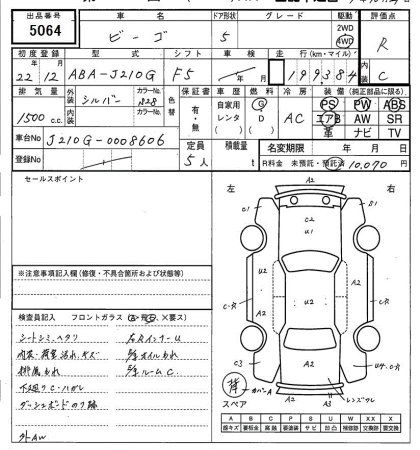 出品番号 車名 ドア形状 グレード 駆動 評価点
5064 ビーゴ 5 2WD 4WD R
初度登録 型式 シフト 車検 走行(km・マイル) 内装
22年12月 ABA-J210G F5 年 月 199384 C
排気量 外装 シルバー カラーNo. 1828 色替 保証書 車歴 燃料 冷房 装備(純正部品に限る)
1500cc 内装 カラーNo. 有・無 自家用 G AC PS PW ABS
レンタ D エアB AW SR
革 ナビ TV
車台No J210G-0008606 定員 積載量 名変期限 年 月 日
登録No 5人 t R料金 未預託・預託済 10,070円
セールスポイント
左 右
A2
C1 S1
C2
U1
A2
U2 U2
C-R A2 A2 C-R
C3 A2 U4.C-R
背 カバーA
スペア A2 A3 レンズワレ
※注意事項記入欄(修復・不具合箇所および状態等)
検査員記入 フロントガラス(A・飛石・×要ス)
シートシミ、ヘタリ 左右インナーU
内装・荷室汚れ、キズ
排風もれ ルームC.
下廻りC・ハガレ
ダッシュボードのり跡
外AW
A B C P S U W XX X
線キズ 要板金 腐蝕 要塗装 サビ 凹凸 補修跡 交換跡 要交換